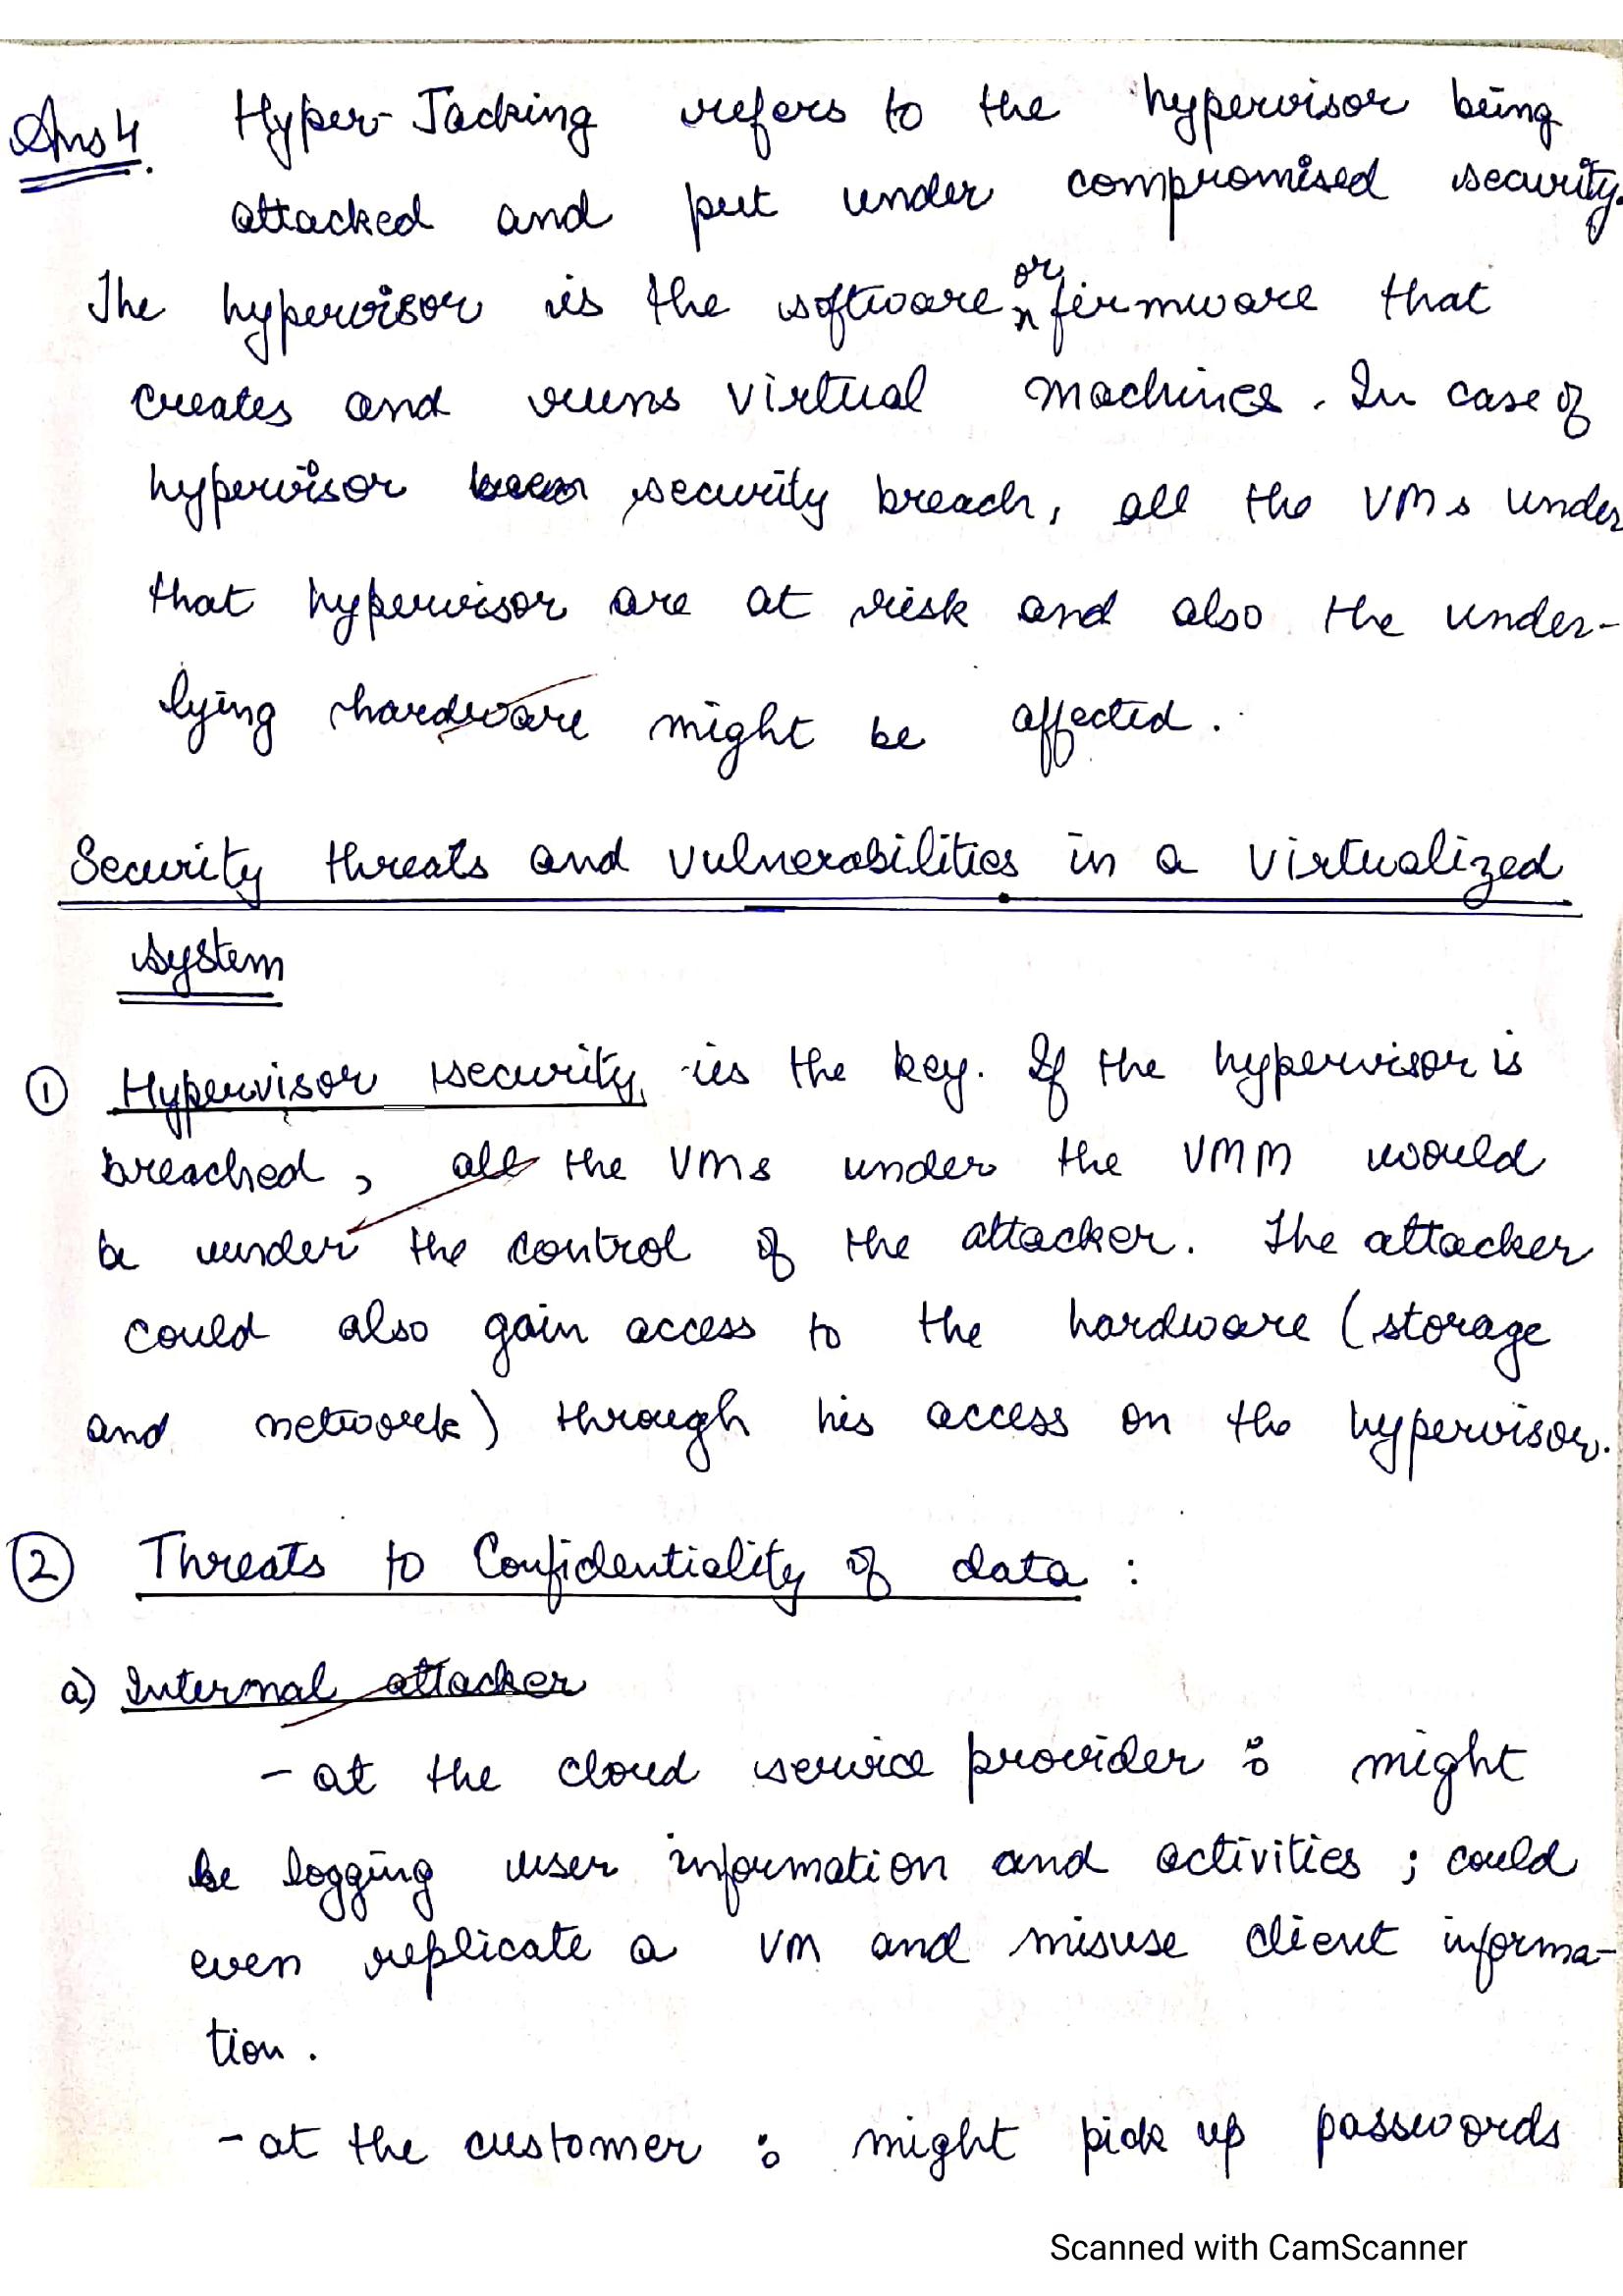 Ans 4. Hyper-Jacking refers to the hypervisor being
attacked and put under compromised security.
The hypervisor is the software or firmware that
creates and runs virtual machines. In case of
hypervisor security breach, all the VMs under
that hypervisor are at risk and also the under-
lying hardware might be affected.
Security threats and vulnerabilities in a virtualized
system
① Hypervisor security is the key. If the hypervisor is
breached, all the VMs under the VMM would
be under the control of the attacker. The attacker
could also gain access to the hardware (storage
and network) through his access on the hypervisor.
② Threats to Confidentiality of data :
a) Internal attacker
- at the cloud service provider : might
be logging user information and activities ; could
even replicate a VM and misuse client informa-
tion.
- at the customer : might pick up passwords
Scanned with CamScanner